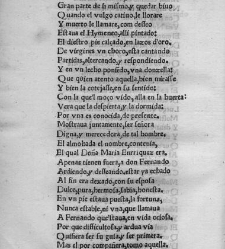 Gran parte de si mismo, y quedar biuo,
Quando el vulgo catiuo le llorare
Y muerto le llamare, com desseo
Estaua el Hymeneo, assi pintado:
El diestro pie calçado, en lazos d'oro,
De virgines vn choro, esta cantando
Partidas, altercando, y respondiendo.
Y en vn lecho poniendo, vna donzella:
Que quien atento aquella, bien mirasse
Y bien la cotejasse, en su sentido:
Con la qu'el moço vido, alla en la huerta:
Vera que la despierta, y la dormida:
Por vna es conocida, de presente.
Mostraua juntamente, ser señora
Digna, y merecedora, de tal hombre,
El almohada el nombre, contenia,
El qual Doña Maria Enriquez era.
Apenas tienen fuera, a don Fernando
Ardiendo, y desseando, estar ya echado
Al fin era dexado, con su esposa
Dulce, pura, hermosa, sabia, honesta.
En vn pie estaua puesta, la fortuna,
Nunca estable, ni vna, que llamaua
A Fernando qu'estaua, en vida ociosa,
Por que dificultosa, y ardua via
Quisiera ser su guia, y ser primera:
Mas el por compañera, tomo aquella,